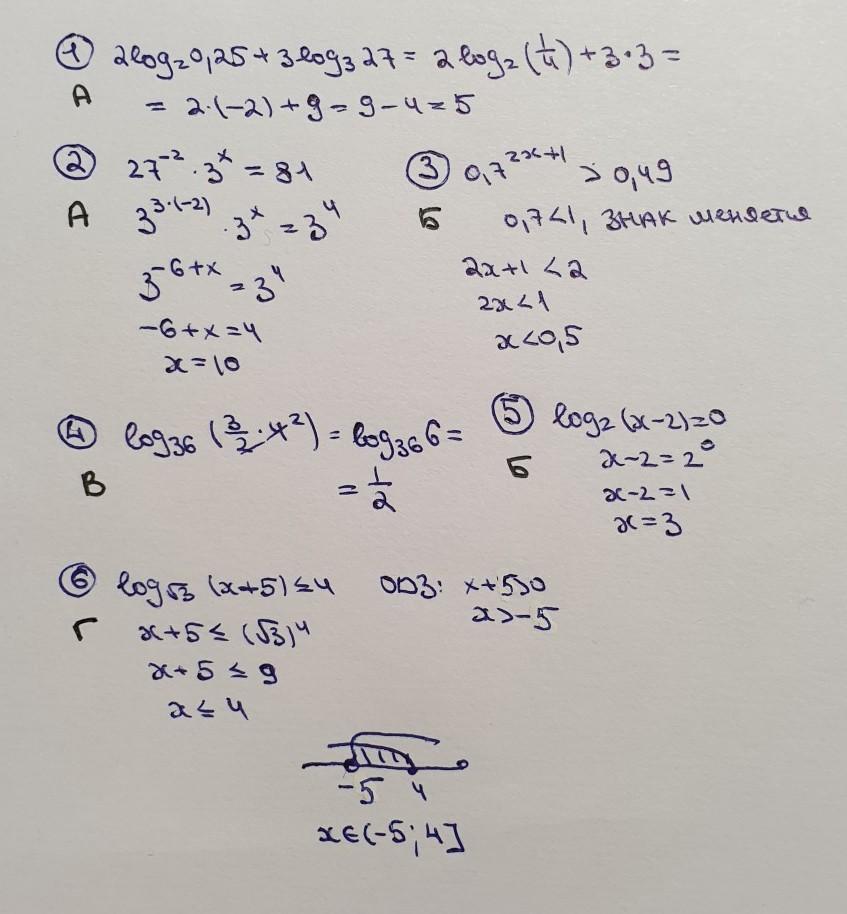 ① 2log₂0,25 + 3log₃27 = 2log₂(1/4) + 3·3 =
А = 2·(-2) + 9 = 9 - 4 = 5
② 27⁻²·3ˣ = 81
А 3³·⁽⁻²⁾·3ˣ = 3⁴
3⁻⁶⁺ˣ = 3⁴
-6+x=4
x=10
③ 0,7²ˣ⁺¹ > 0,49
Б 0,7<1, ЗНАК меняется
2x+1<2
2x<1
x<0,5
④ log₃₆(3/2·4²) = log₃₆6 =
В = 1/2
⑤ log₂(x-2)=0
Б x-2=2⁰
x-2=1
x=3
⑥ log√3 (x+5) ≤ 4 ОДЗ: x+5>0
Г x+5 ≤ (√3)⁴ x>-5
x+5 ≤ 9
x ≤ 4
-5 4
x∈(-5; 4]